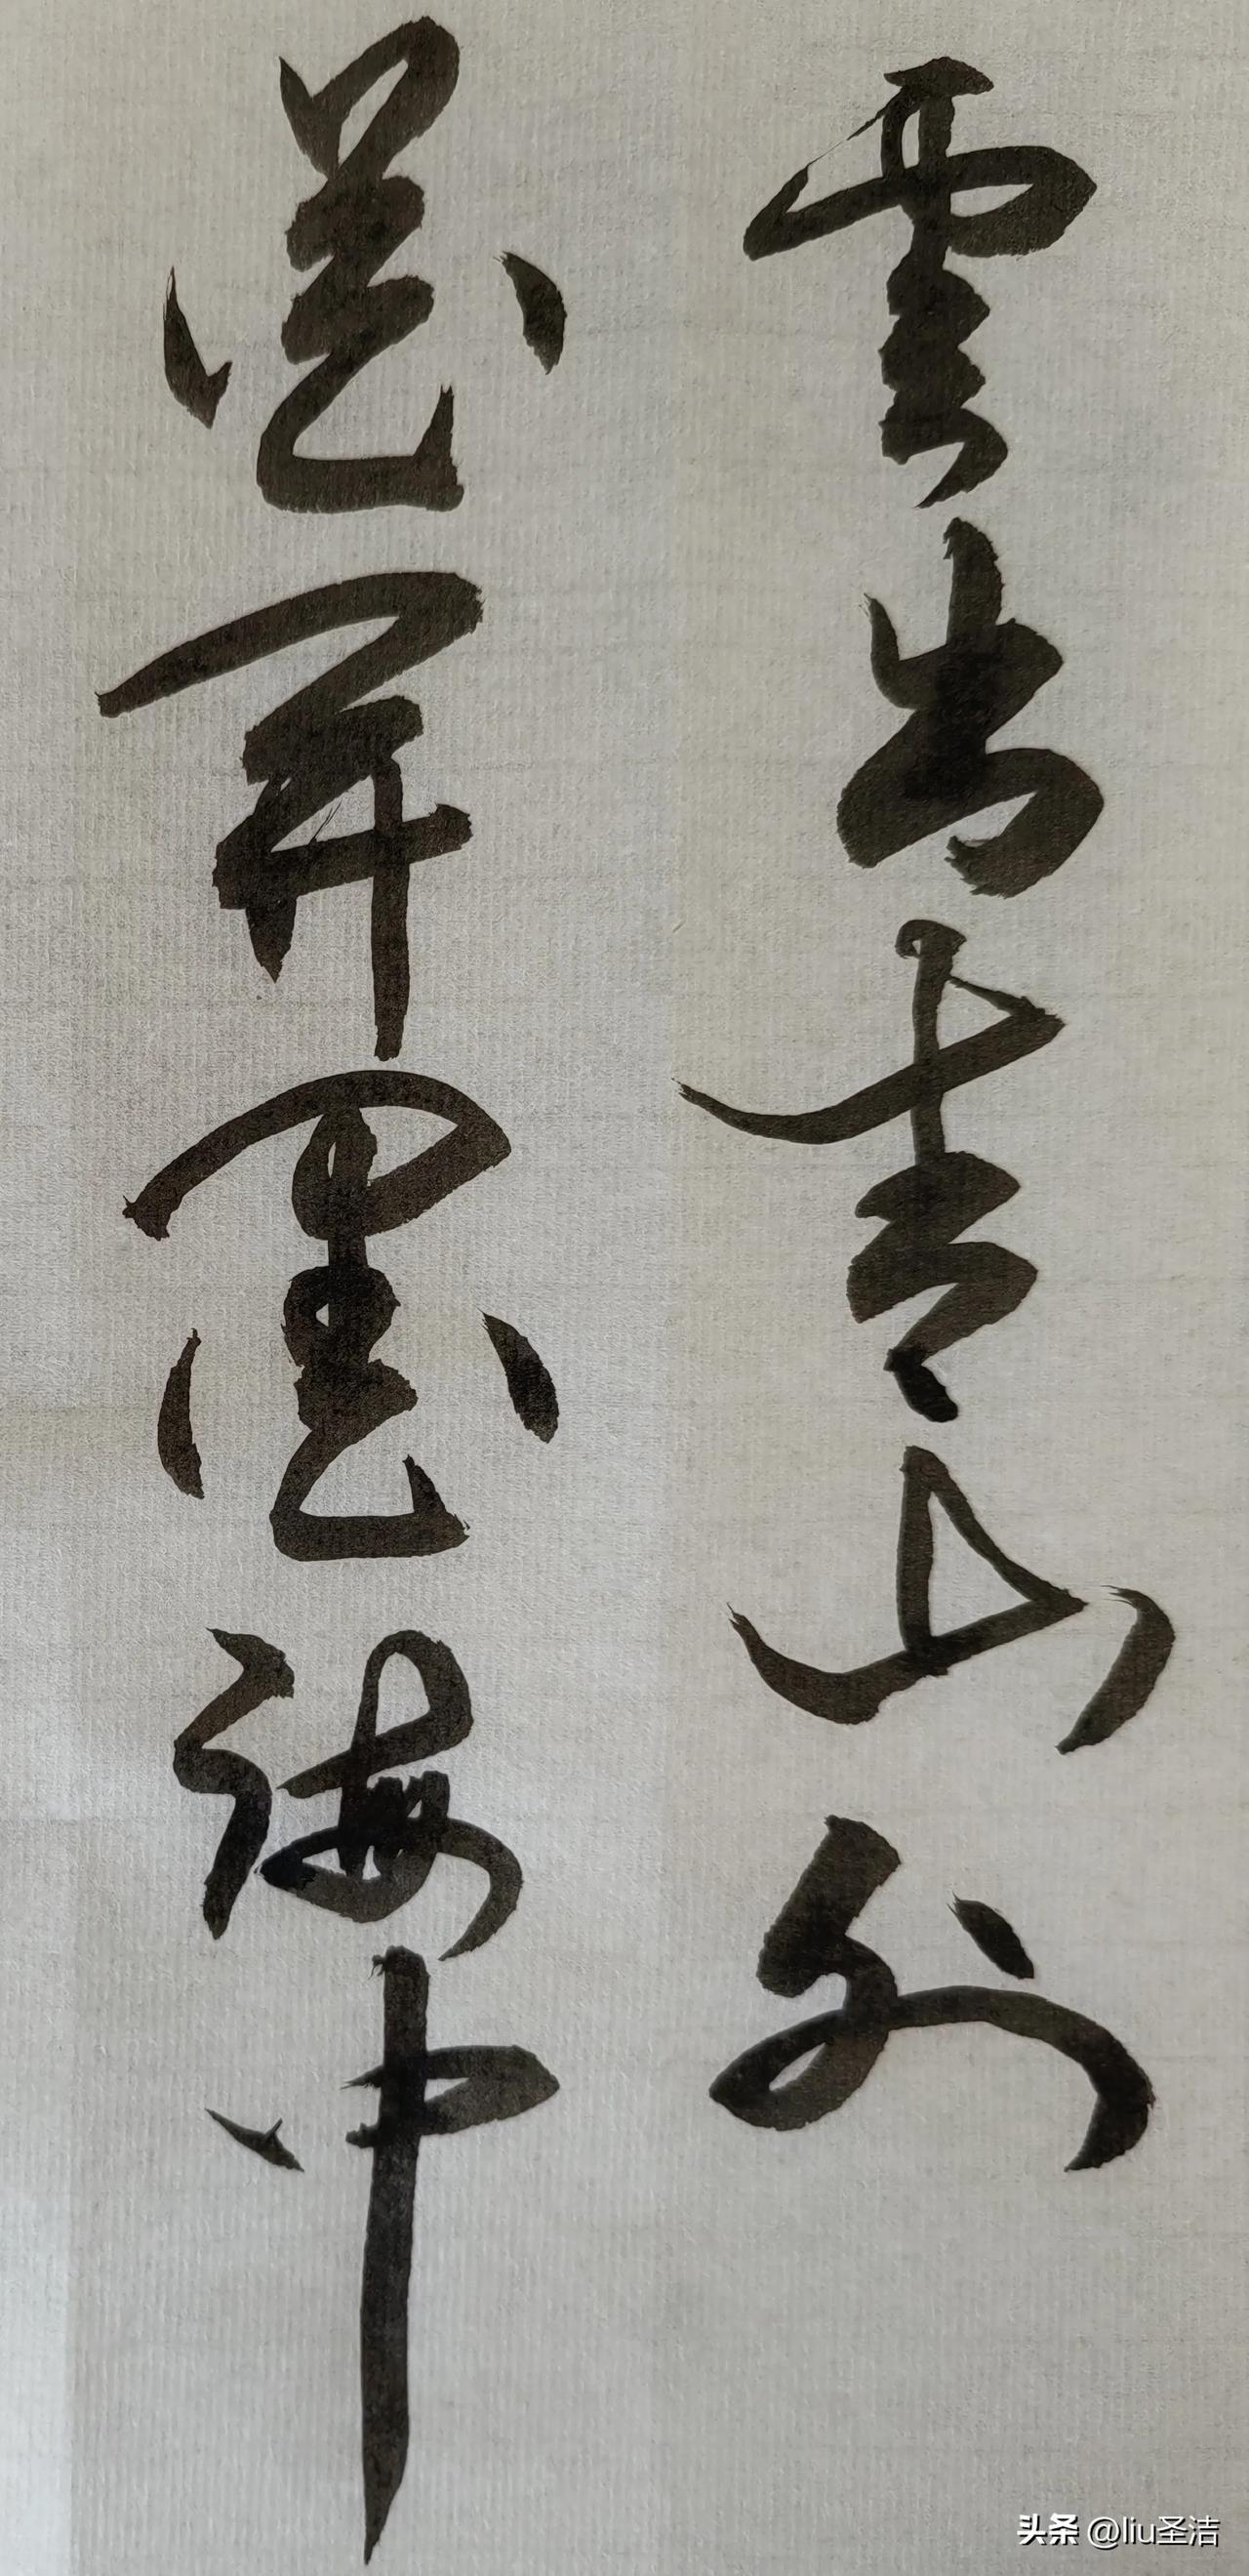 雲出青山外
開墨海中
头条 @liu圣洁